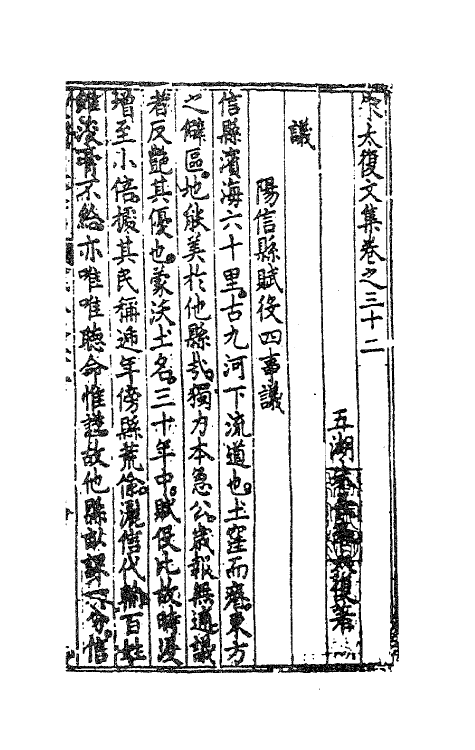 宋太復文集卷之三十二
五湖復著
議
陽信縣賦役四事議
信縣濱海六十里古九河下流道也土窪而瘠東方
之僻區地能美於他縣哉獨力本急公歲報無逋議
者反艷其優也蒙沃土名三十年中賦役比故時浸
增至小倍援其民稱逋年傍縣荒偷灑信代輸百姓
雖浚膏不給亦唯唯聽命惟謹故他縣畝課一分信